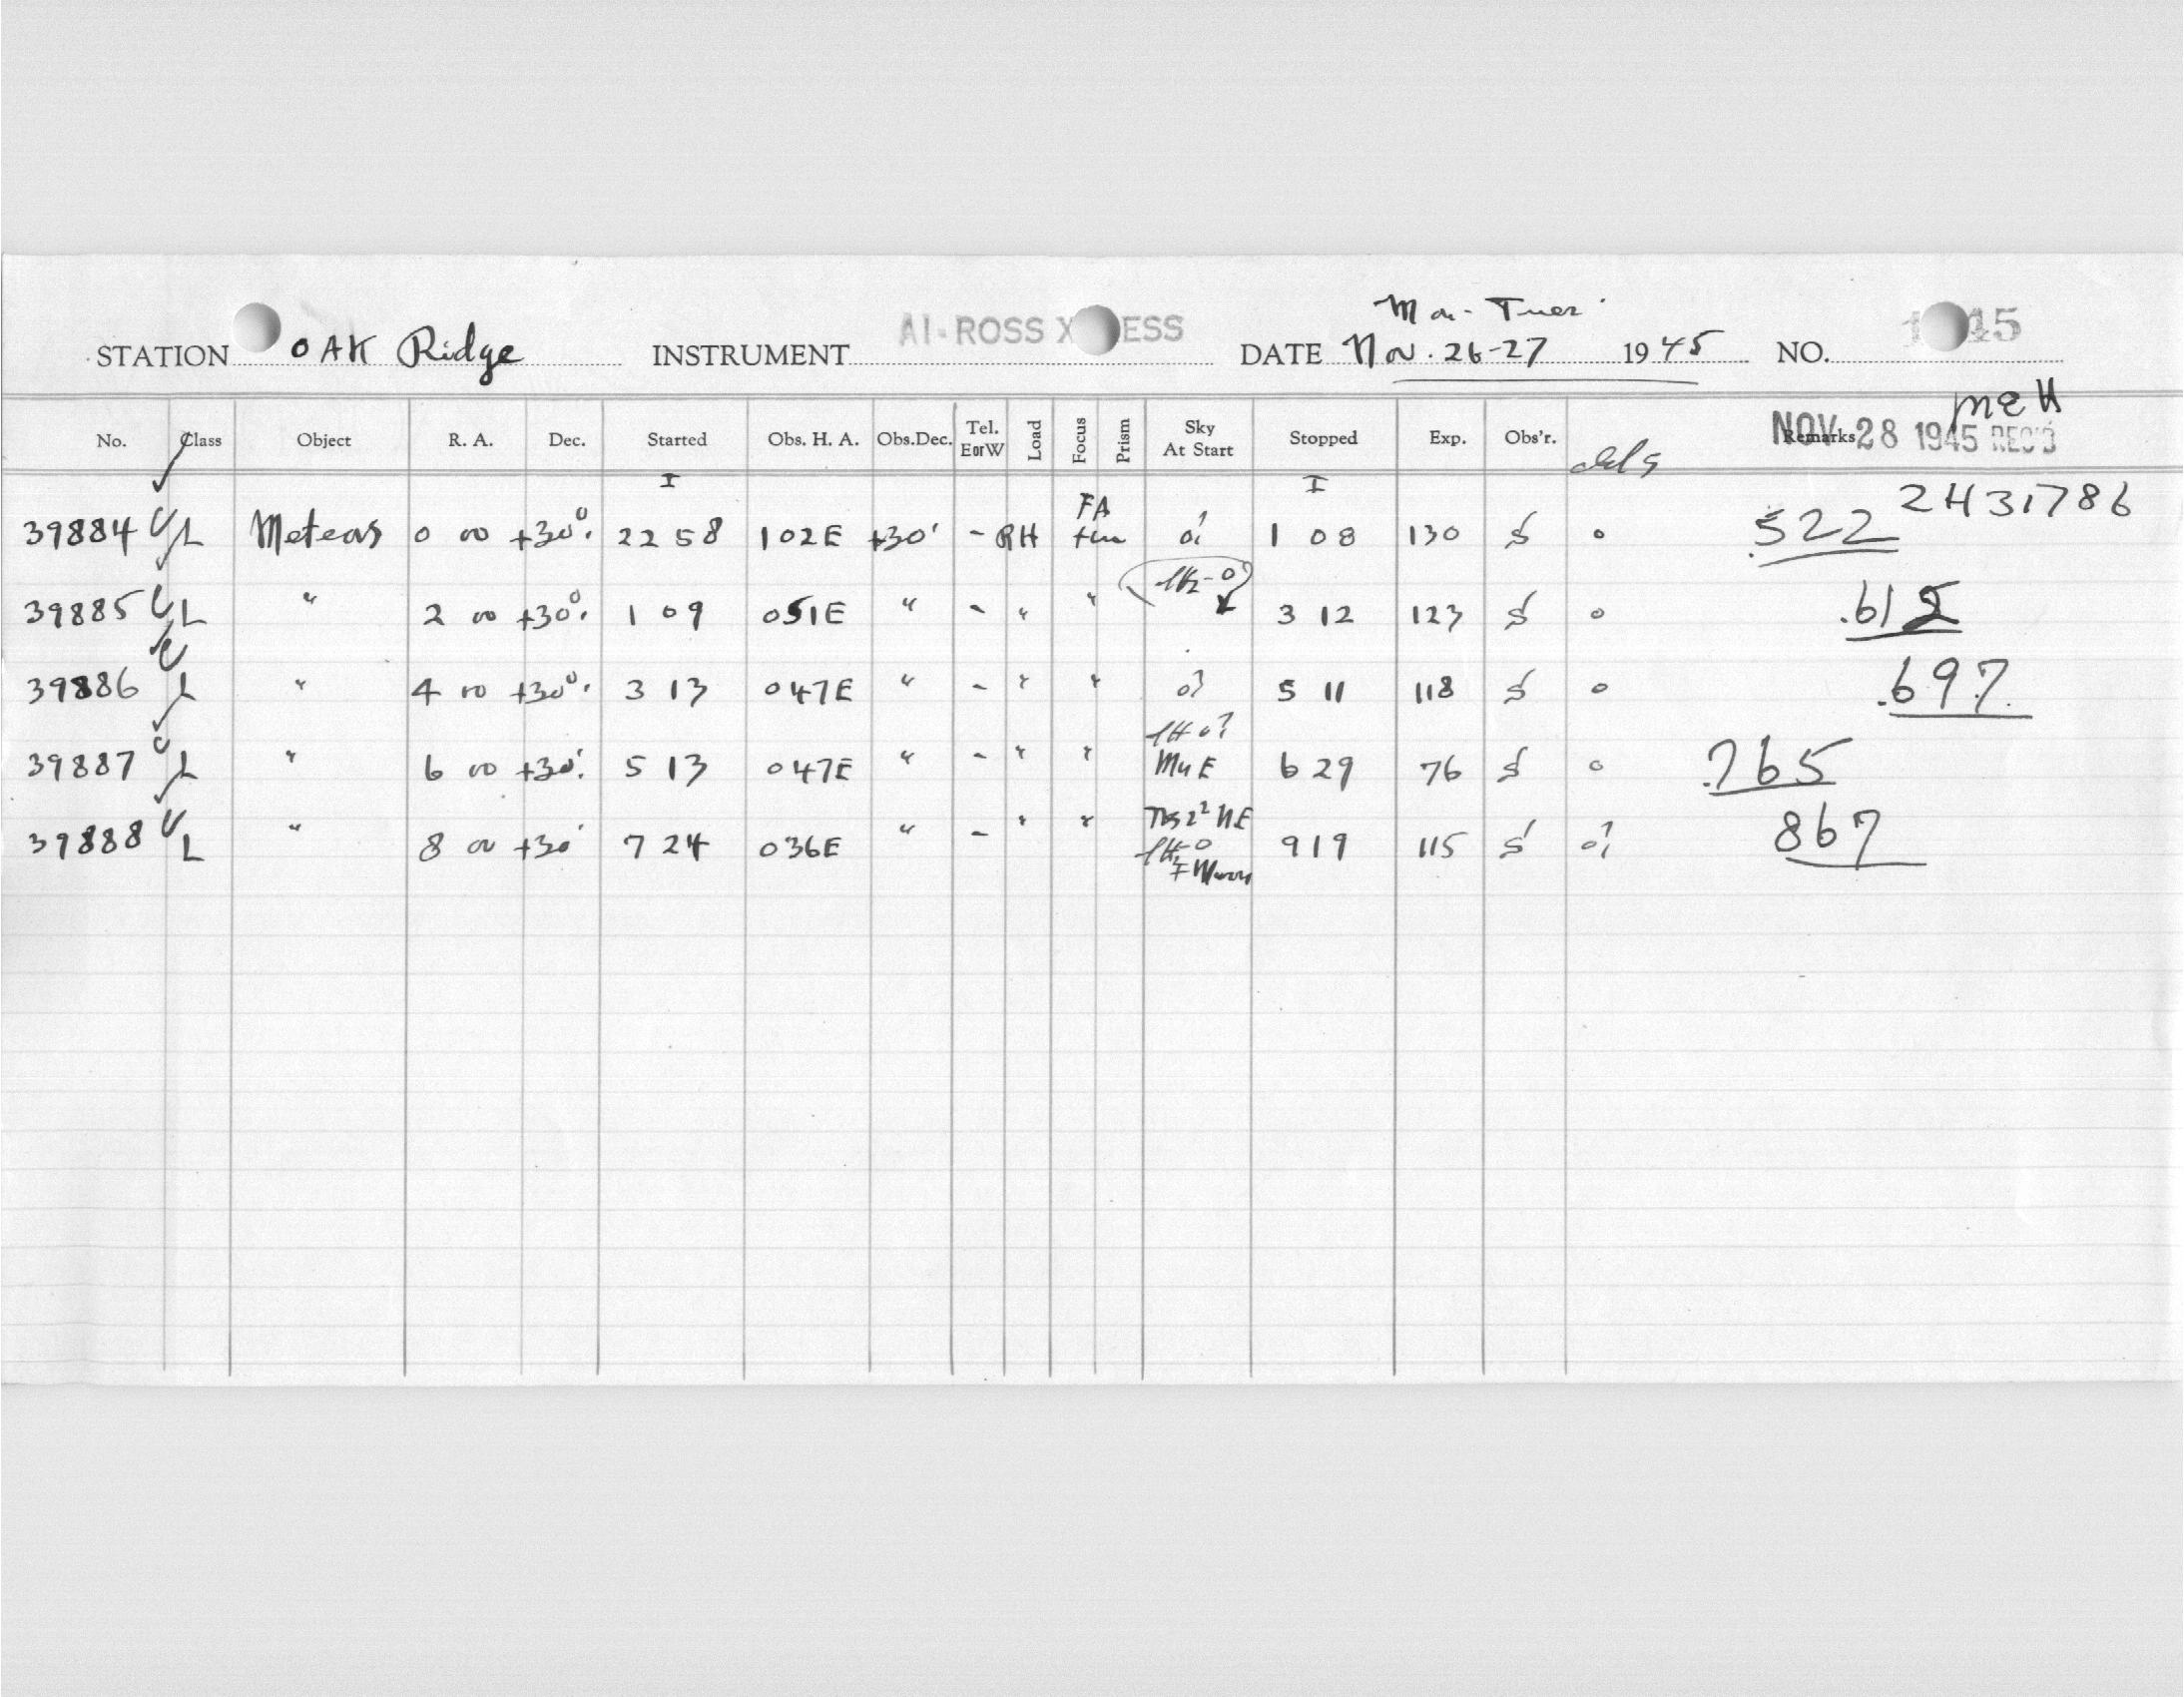 Mon - Tues
STATION OAK Ridge INSTRUMENT AI-ROSS X ESS DATE Nov. 26-27 1945 NO. 15
MEH
No. Class Object R. A. Dec. Started Obs. H. A. Obs.Dec. Tel. EorW Load Focus Prism Sky At Start Stopped Exp. Obs'r. clds Remarks NOV 28 1945 REC'D
I I
39884 L Meteors 0 00 +30° 22 58 102E +30° - RH FA 1 08 130 S 0 .522 2431786
39885 L " 2 00 +30° 1 09 051E " - " " 3 12 123 S 0 .612
39886 L " 4 00 +30° 3 13 047E " - " " 0? 5 11 118 S 0 .697
39887 L " 6 00 +30° 5 13 047E " - " " 6 29 76 S 0 .765
39888 L " 8 00 +30° 7 24 036E " - " " NE Moon 9 19 115 S 0? 867